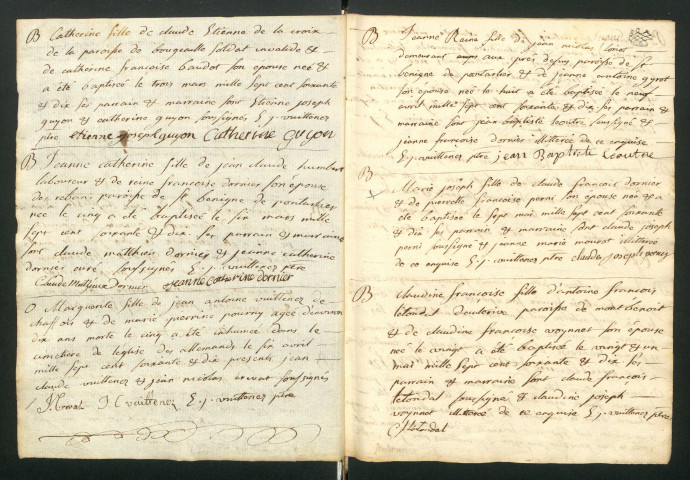 B Catherine fille de claude Etienne de la croix
de la paroisse de bougeaille soldat invalide &
de catherine francoise baudot son epouse neé &
a été baptiseé le trois mars mille sept cent soixante
& dix ses parrain & marraine sont Etienne joseph
guyon & catherine guyon soussignés E. j. vuittenez
ptre etienne joseph guyon Catherine guyon
B Jeanne catherine fille de jean claude humbert
laboureur & de reine francoise dornier son epouse
de paroisse de st benigne de pontarlier
neé le cinq a été baptiseé le six mars mille
sept cent soixante & dix ses parrain & marraine
sont claude matthieu dornier & jeanne catherine
dornier soussignés E. j. vuittenez ptre
Claude Matthieux dornier jeanne Catherine dornier
O Marguerite fille de jean antoine vuittenez de
chaffois & de marie perrine pourny ageé d'environ
dix ans morte le cinq a été inhumeé dans le
cimetiere de l'eglise des allemands le six avril
mille sept cent soixante & dix presents jean
claude vuittenez & jean nicolas soussignés
J C vuittenez E. j. vuittenez ptre
B Jeanne Raine fille de jean nicolas
demeurant aux pres dessus paroisse de st
benigne de pontarlier & de jeanne antoine gyrot
son epouse neé le huit a été baptiseé le neuf
avril mille sept cent soixante & dix ses parrain &
marraine sont jean baptiste lecoutre soussigné &
jeanne francoise dornier illitereé de ce enquise
E. j. vuittenez ptre jean Baptiste Lecoutre
B Marie joseph fille de claude francois dornier
& de pierrette francoise perni son epouse neé & a
été baptiseé le sept mai mille sept cent soixante
& dix ses parrain & marraine sont claude joseph
perni soussigné & jeanne marie mourot illitereé
de ce enquise E. j. vuittenez ptre claude joseph perney
B Claudine francoise fille d'antoine francois
letondal paroisse de montbenoit
& de claudine francoise voynnet son epouse
neé le vingt a été baptiseé le vingt & un
mai mille sept cent soixante & dix ses
parrain & marraine sont claude francois
letondal soussigné & claudine joseph
voynnet illitereé de ce enquise E. j. vuittenez ptre
C f letondal